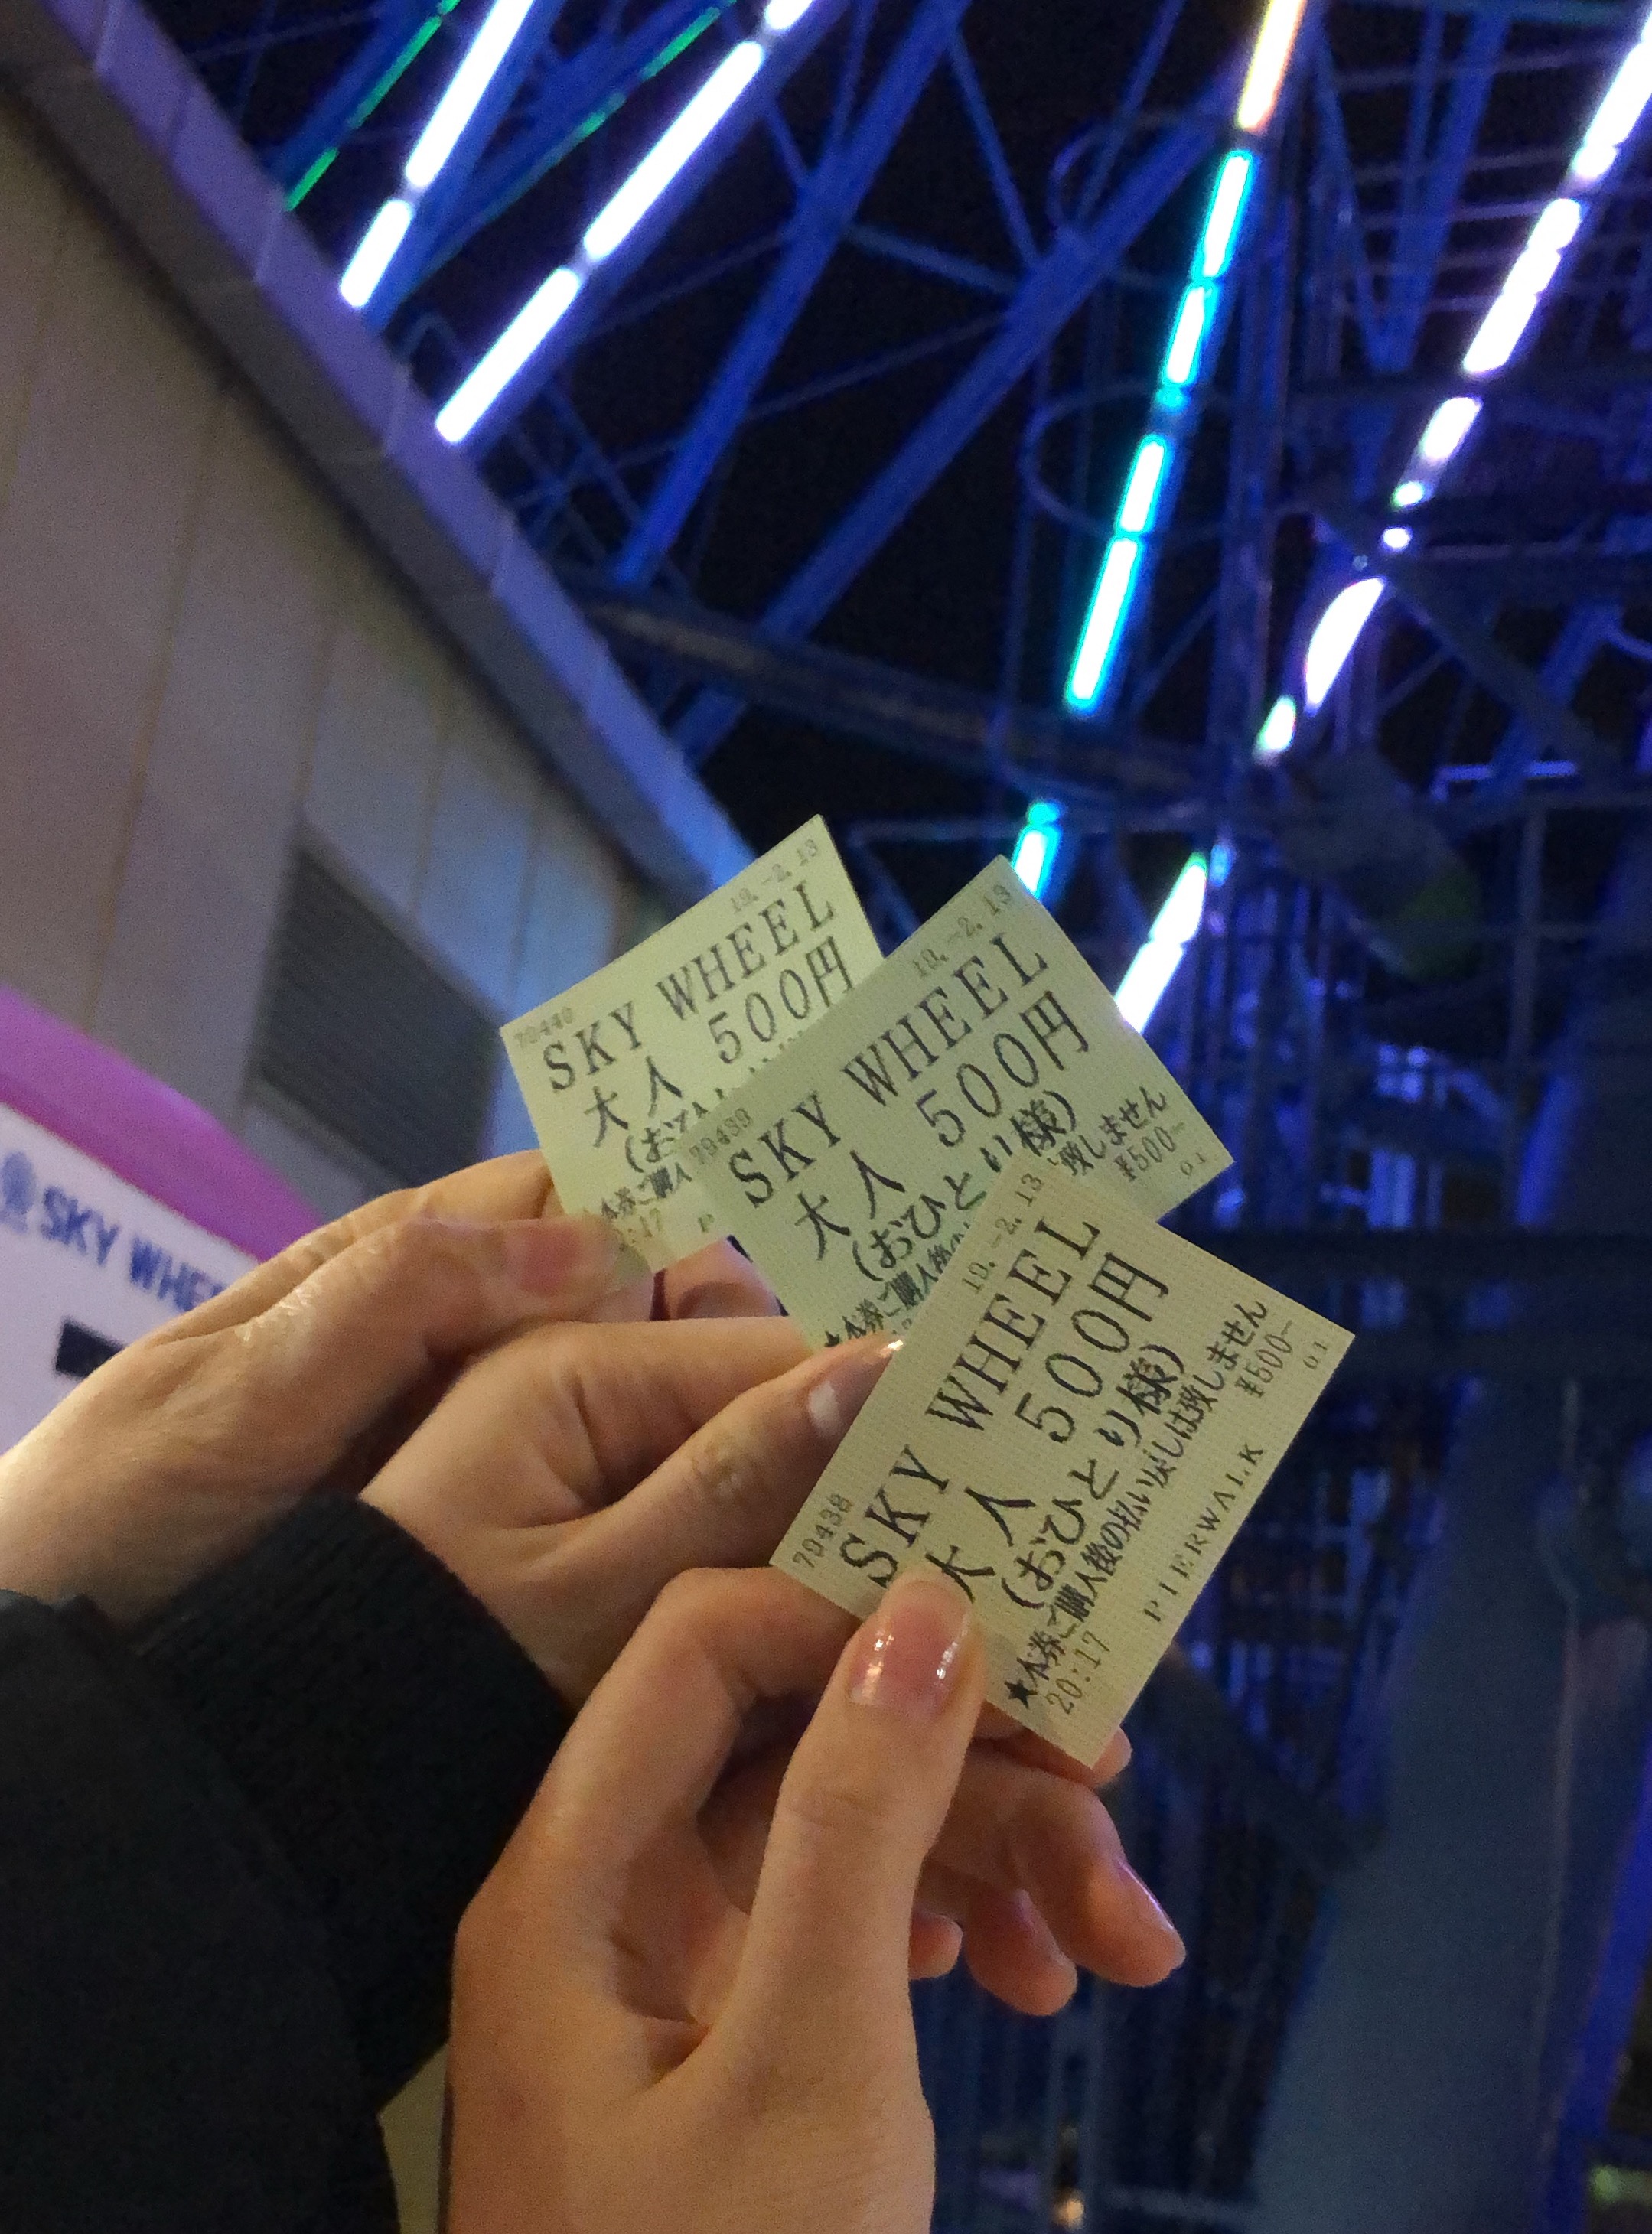 19.-2.13
79440
SKY WHEEL
大人 500円
(おひ
本券ご購人
:17
19.-2.13
79439
SKY WHEEL
大人 500円
(おひとり様)
★本券ご購入後の
致しません
¥500-
01
19.-2.13
79438
SKY WHEEL
大人 500円
(おひとり様)
★本券ご購入後の払い戻しは致しません
20:17
¥500-
PIERWALK
01
SKY WHEE